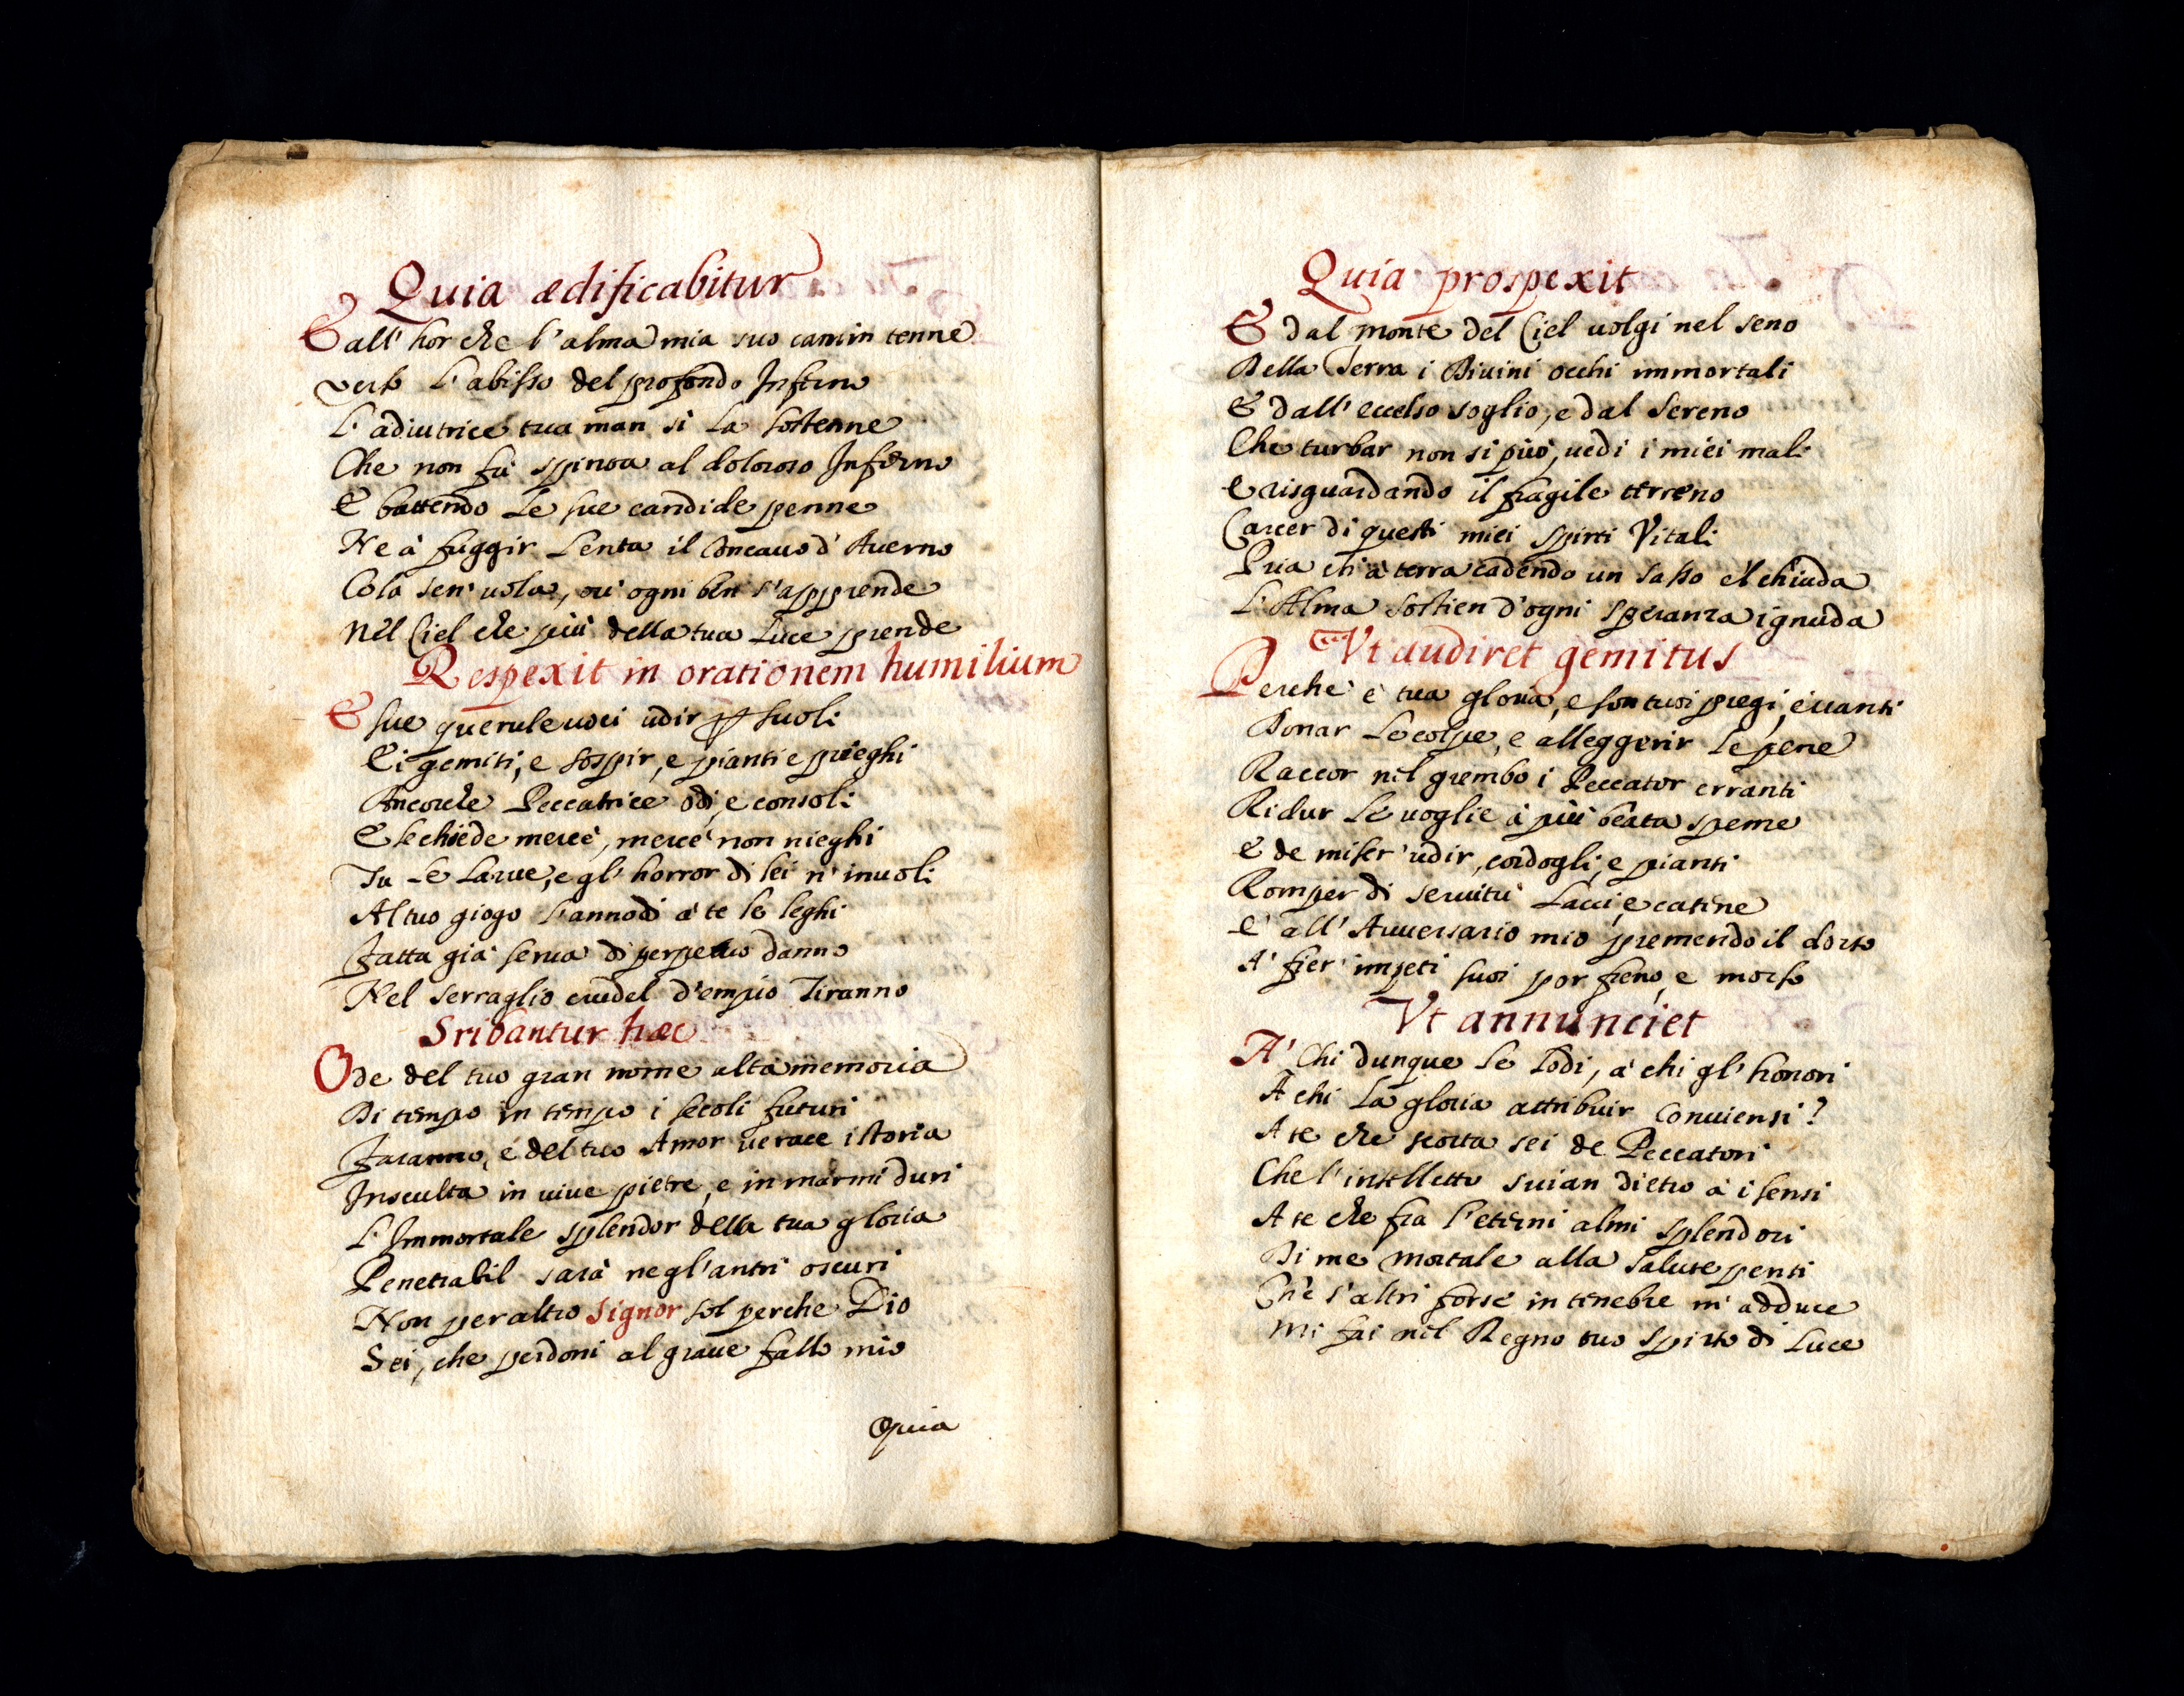 Quia ædificabitur
E all' hor che l'alma mia suo camin tenne
verso L'abisso del profondo Inferno
L'adiutrice tua man si La sostenne
Che non fù spinta al doloroso Inferno
E battendo Le sue candide penne
Ne à fuggir Lenta il concauo d'Auerno
Colà sen' uola, ou' ogni ben s'apprende
Nel Ciel che più della tua Luce prende
Respexit in orationem humilium
E sue querule uoci udir suoli
E i gemiti, e sospir, e pianti e prieghi
Ancorche Peccatrice odi, e consoli
E se chiede mercè, mercè non nieghi
Tu Le Larue, e gl' horror di lei n' inuoli
Al tuo giogo l'annodi à te le leghi
Fatta già serua di perpetuo danno
Nel serraglio crudel d'empio Tiranno
Sribantur hæc
Ode del tuo gran nome alta memoria
Di tempo in tempo i secoli futuri
Faranno, e del tuo Amor uerace istoria
Insculta in uiue pietre, e in marmi duri
L'Immortale splendor della tua gloria
Penetrabil sarà negl'antri oscuri
Non per altro Signor sol perche Dio
Sei, che perdoni al graue fallo mio
Quia
Quia prospexit
E dal monte del Ciel uolgi nel seno
Della Terra i Diuini occhi immortali
E dall' eccelso soglio, e dal sereno
Che turbar non si può, uedi i miei mali
E risguardando il fragile terreno
Carcer di questi miei spirti Vitali
Pria ch' à terra cadendo un sasso el chiuda
L'Alma sostien d'ogni speranza ignuda
Vt audiret gemitus
Perche è tua gloria, e son tuoi pregi, e uanti
Donar Le colpe, e alleggerir Le pene
Raccor nel grembo i Peccator erranti
Ridur Le uoglie à più beata speme
E de miser' udir, cordogli, e pianti
Romper di seruitù Lacci, e catene
E all' Auuersario mio premendo il dorso
A' fier' impeti suoi por freno, e morso
Vt annunciet
A' Chi dunque Le Lodi, à chi gl' honori
A chi La gloria attribuir conuiensi?
A te che scorta sei de Peccatori
Che l'intelletto suian dietro à i sensi
A te che fra l'eterni almi splendori
Di me mortale alla salute pensi
Che s'altri forse in tenebre m' adduce
Mi fai nel Regno tuo spirto di Luce